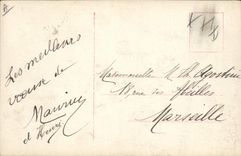 Les meilleurs
voeux de
Maurice
et Henry
Mademoiselle M. Th.
18 rue des Abeilles
Marseille